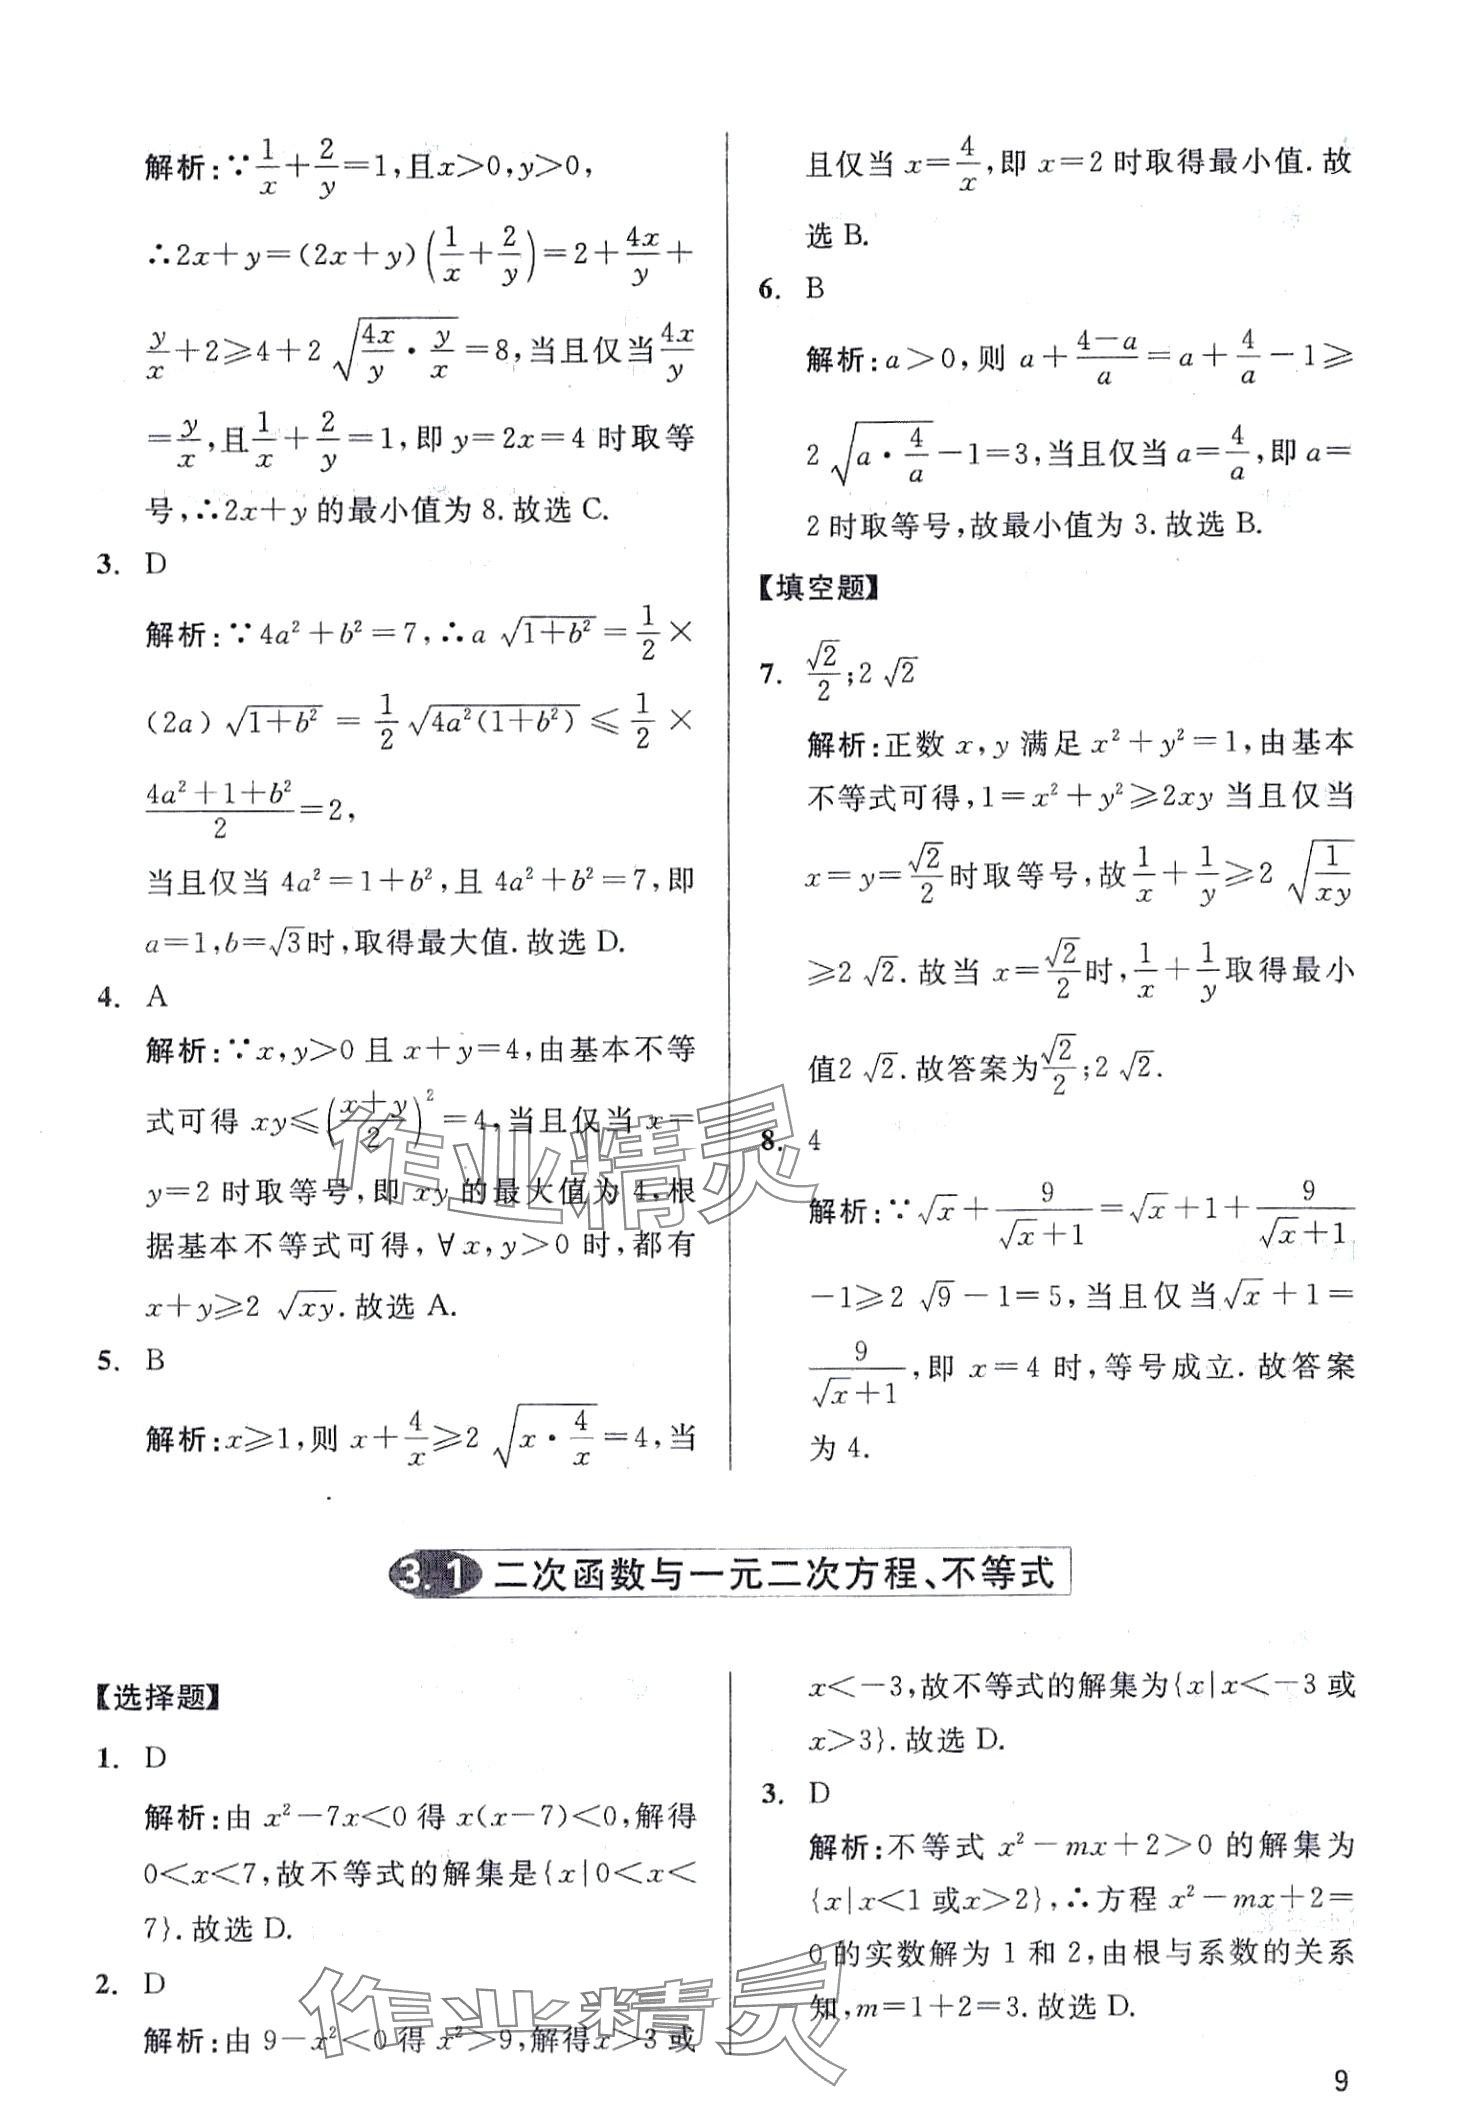 解析:∵1/x+2/y=1,且x>0,y>0,
∴2x+y=(2x+y)(1/x+2/y)=2+4x/y+
y/x+2≥4+2√(4x/y·y/x)=8,当且仅当4x/y
=y/x,且1/x+2/y=1,即y=2x=4时取等
号,∴2x+y的最小值为8.故选C.
3. D
解析:∵4a²+b²=7,∴a√(1+b²)=1/2×
(2a)√(1+b²)=1/2√(4a²(1+b²))≤1/2×
(4a²+1+b²)/2=2,
当且仅当4a²=1+b²,且4a²+b²=7,即
a=1,b=√3时,取得最大值.故选D.
4. A
解析:∵x,y>0且x+y=4,由基本不等
式可得xy≤((x+y)/2)²=4,当且仅当x=
y=2时取等号,即xy的最大值为4,根
据基本不等式可得,∀x,y>0时,都有
x+y≥2√(xy).故选A.
5. B
解析:x≥1,则x+4/x≥2√(x·4/x)=4,当
且仅当x=4/x,即x=2时取得最小值.故
选B.
6. B
解析:a>0,则a+(4-a)/a=a+4/a-1≥
2√(a·4/a)-1=3,当且仅当a=4/a,即a=
2时取等号,故最小值为3.故选B.
【填空题】
7. √2/2;2√2
解析:正数x,y满足x²+y²=1,由基本
不等式可得,1=x²+y²≥2xy当且仅当
x=y=√2/2时取等号,故1/x+1/y≥2√(1/xy)
≥2√2.故当x=√2/2时,1/x+1/y取得最小
值2√2.故答案为√2/2;2√2.
8. 4
解析:∵√x+9/(√x+1)=√x+1+9/(√x+1)
-1≥2√9-1=5,当且仅当√x+1=
9/(√x+1),即x=4时,等号成立.故答案
为4.
3.1 二次函数与一元二次方程、不等式
【选择题】
1. D
解析:由x²-7x<0得x(x-7)<0,解得
0<x<7,故不等式的解集是{x|0<x<
7}.故选D.
2. D
解析:由9-x²<0得x²>9,解得x>3或
x<-3,故不等式的解集为{x|x<-3或
x>3}.故选D.
3. D
解析:不等式x²-mx+2>0的解集为
{x|x<1或x>2},∴方程x²-mx+2=
0的实数解为1和2,由根与系数的关系
知,m=1+2=3.故选D.
9
作业精灵
作业精灵